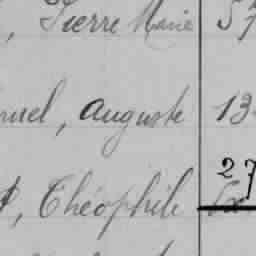 , Pierre Marie 57
nuel, Auguste 13
27
, Théophile